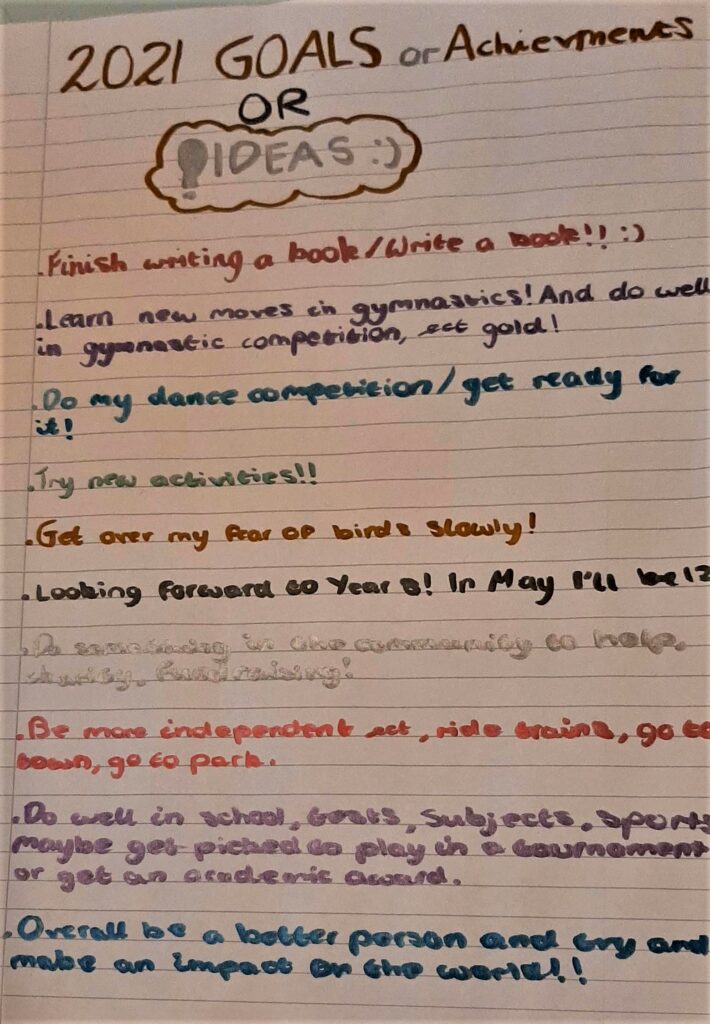 2021 GOALS or Achievments
OR
IDEAS :)
.Finish writing a book/Write a book!! :)
.Learn new moves in gymnastics! And do well
in gymnastic competition, ect gold!
.Do my dance competition/get ready for
it!
.Try new activities!!
.Get over my fear of birds slowly!
.Looking forward to Year 8! In May I'll be 12
.Do something in the community to help,
charity, fundraising!
.Be more independent ect, ride trains, go to
town, go to park.
.Do well in school, tests, subjects, sports
maybe get picked to play in a tournament
or get an academic award.
.Overall be a better person and try and
make an impact on the world!!